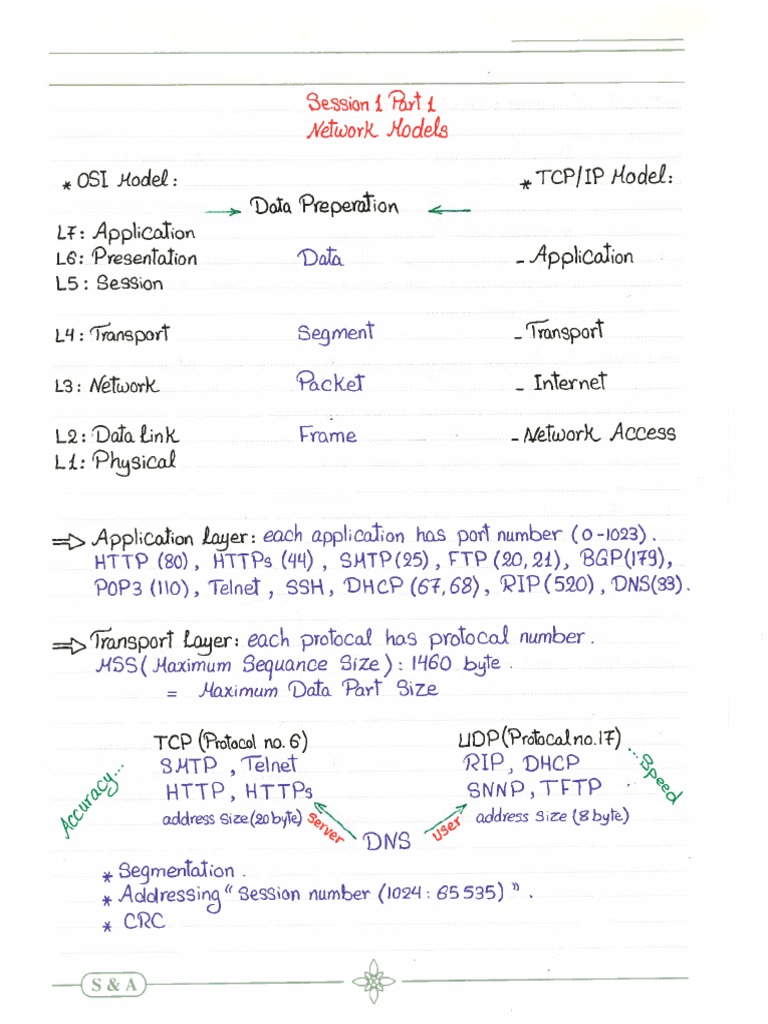 Session 1 Part 1
Network Models
* OSI Model: * TCP/IP Model:
→ Data Preperation ←
L7: Application
L6: Presentation Data - Application
L5: Session
L4: Transport Segment - Transport
L3: Network Packet - Internet
L2: Data Link Frame - Network Access
L1: Physical
⇒ Application Layer: each application has port number (0-1023).
HTTP (80), HTTPs (44), SMTP(25), FTP (20,21), BGP(179),
POP3 (110), Telnet, SSH, DHCP (67,68), RIP(520), DNS(33).
⇒ Transport Layer: each protocal has protocal number.
MSS( Maximum Sequance Size): 1460 byte.
= Maximum Data Part Size
TCP (Protocol no.6) UDP(Protocal no.17)
Accuracy... SMTP, Telnet RIP, DHCP ...Speed
HTTP, HTTPs SNNP, TFTP
address size(20 byte) server user address size (8 byte)
DNS
* Segmentation.
* Addressing "Session number (1024: 65535)".
* CRC
S & A